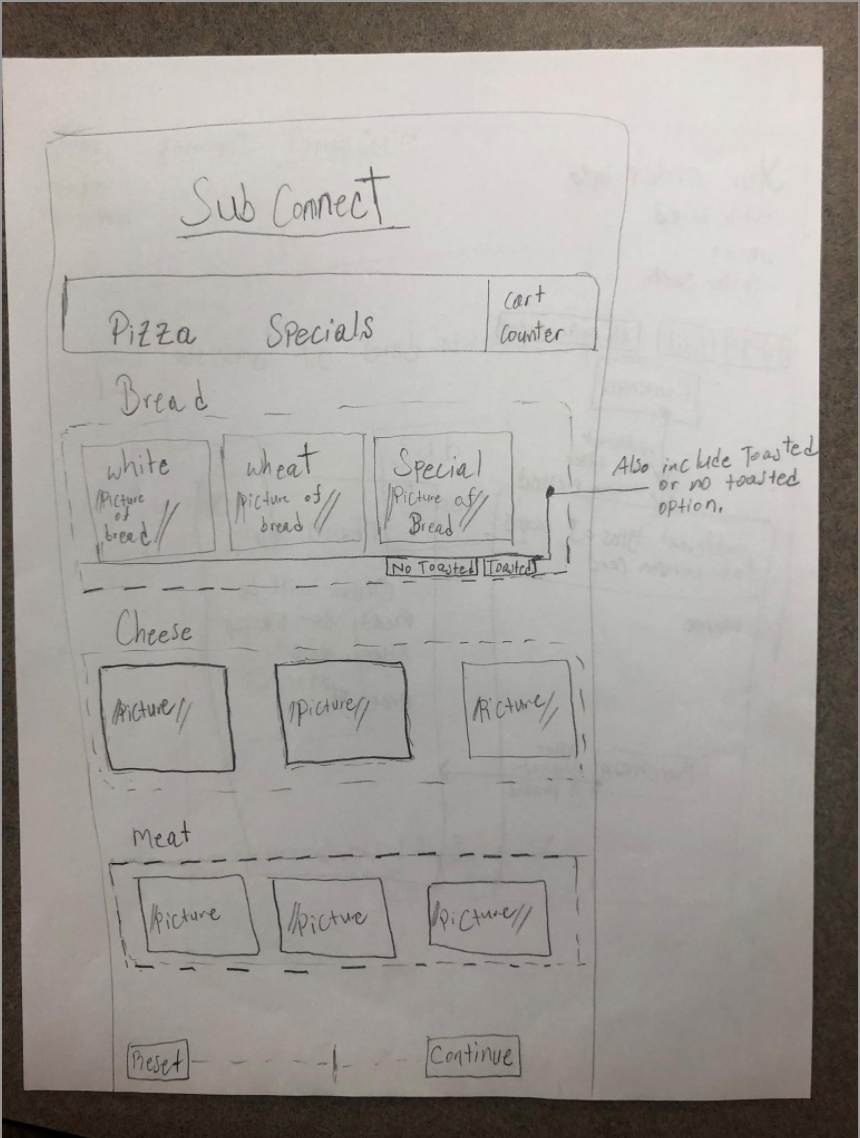 Sub Connect
Pizza Specials
Cart
Counter
Bread
white
//Picture
of
bread//
wheat
//picture of
bread//
Special
//Picture of
Bread//
Also include Toasted
or no toasted
option.
No Toasted
Toasted
Cheese
//Picture//
//Picture//
//Picture//
Meat
//Picture
//Picture
//Picture//
Reset
Continue